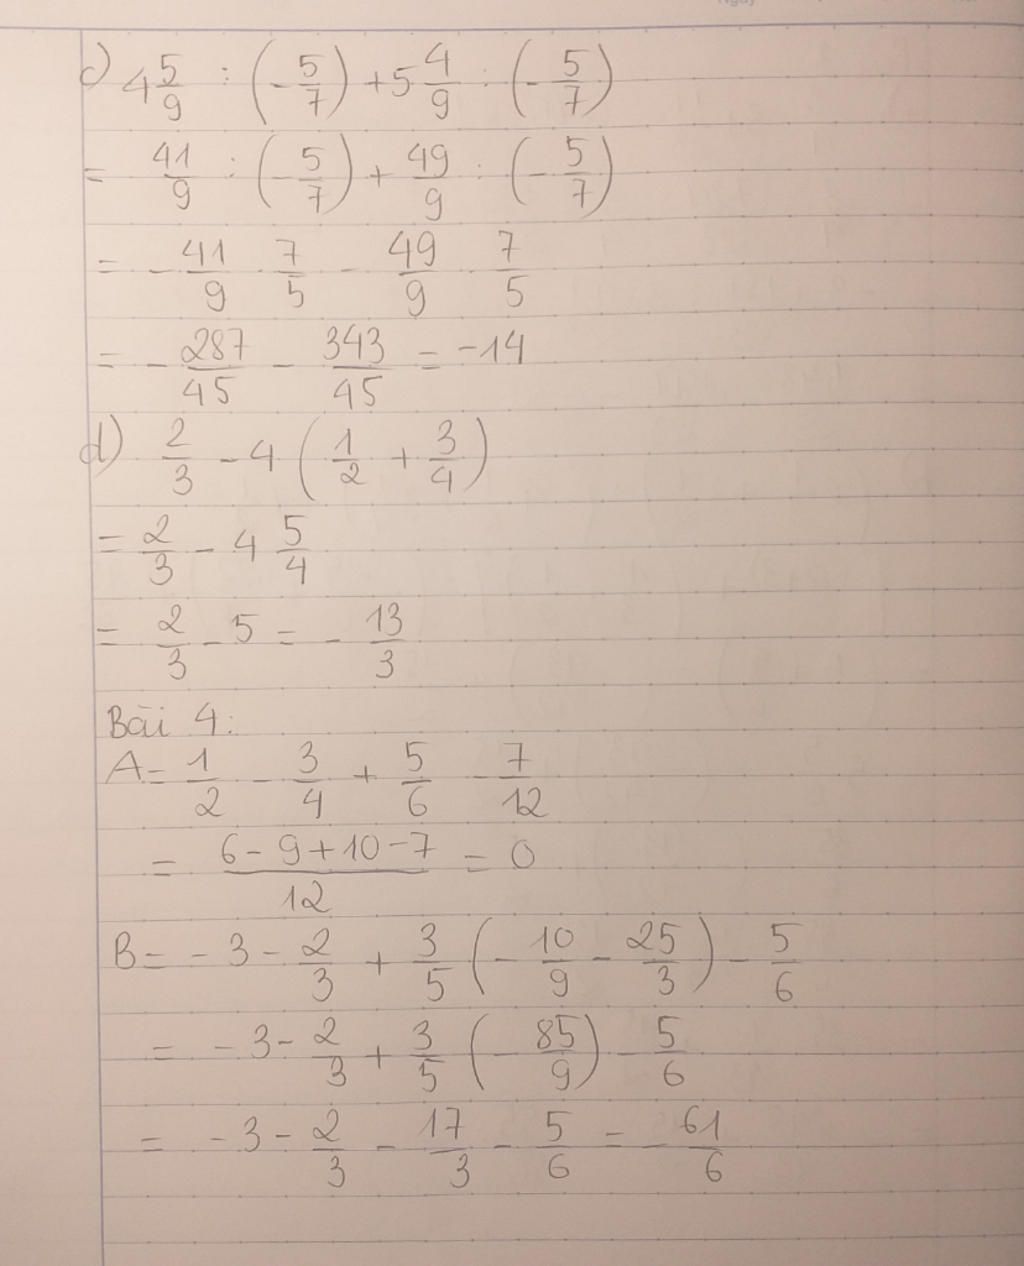 c) 4 5/9 : (-5/7) + 5 4/9 : (-5/7)
= 41/9 : (-5/7) + 49/9 : (-5/7)
= -41/9 . 7/5 - 49/9 . 7/5
= -287/45 - 343/45 = -14
d) 2/3 - 4 (1/2 + 3/4)
= 2/3 - 4 5/4
= 2/3 - 5 = -13/3
Bài 4:
A = 1/2 - 3/4 + 5/6 - 7/12
= (6 - 9 + 10 - 7)/12 = 0
B = -3 - 2/3 + 3/5 (-10/9 - 25/3) - 5/6
= -3 - 2/3 + 3/5 (-85/9) - 5/6
= -3 - 2/3 - 17/3 - 5/6 = -61/6